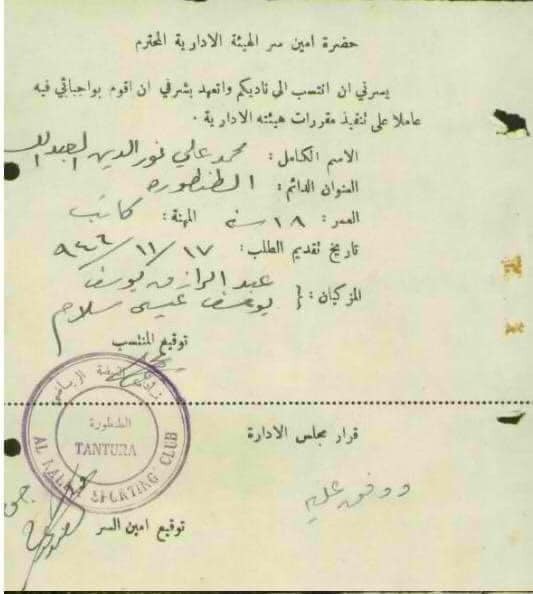 حضرة امين سر الهيئة الادارية المحترم
يسرني ان انتسب الى ناديكم واتعهد بشرفي ان اقوم بواجباتي فيه
عاملا على تنفيذ مقررات هيئته الادارية .
الاسم الكامل : محمد علي نور الدين
العنوان الدائم : الطنطوره
العمر : ١٨ سنة المهنة : كاتب
تاريخ تقديم الطلب : ١٧ / ١١ / ٩٤٦
المزكيان : { عبد الرازق يوسف
يوسف عيسى سلام
توقيع المنتسب
نادي النهضة الرياضي
الطنطورة
TANTURA
AL NAHDA SPORTING CLUB
قرار مجلس الادارة
ووفق عليه
توقيع امين السر